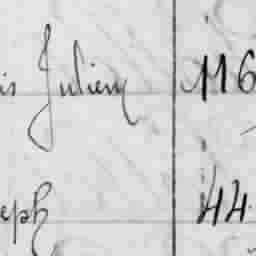 is Julien 116
eph 44